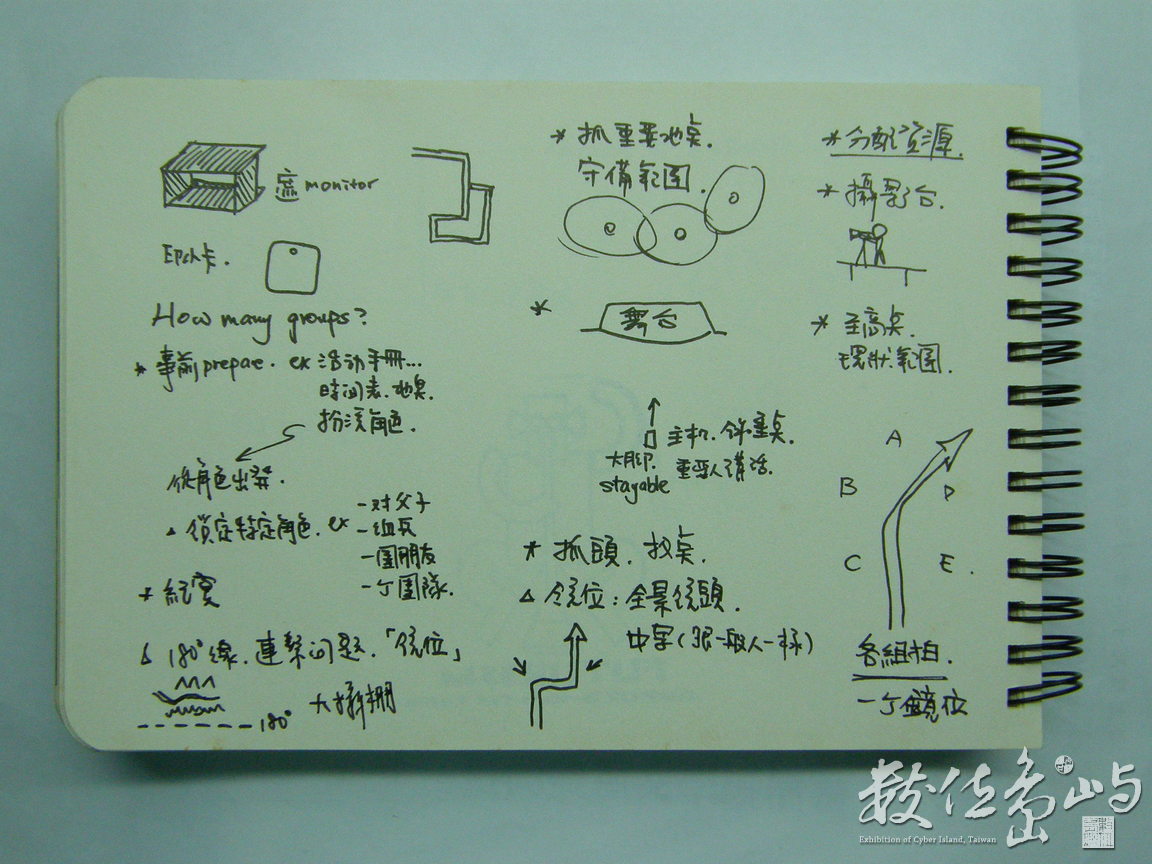 遮 monitor
卡.
How many groups?
* 事前 prepare. ex 活动手冊...
時间表. 地桌.
扮演角色.
從角色出發.
△ 鎖定特定角色. ex
- 对父子
- 組兵
- 團朋友
- 丁團隊.
* 紀實
△ 180°線. 連繫问题.「鏡位」
180°
大
* 抓重要地桌.
守備範圍.
* 舞台
主机. 重桌.
大腳. 重要人講话.
stayable
* 抓頭. 找桌.
△ 鏡位: 全景鏡頭.
中
(跟一般人一樣)
* 分配资源.
* 攝影台.
* 至高桌.
環狀範圍.
A
B
D
C
E.
各組拍.
一丁鏡位
數位島嶼
Exhibition of Cyber Island, Taiwan